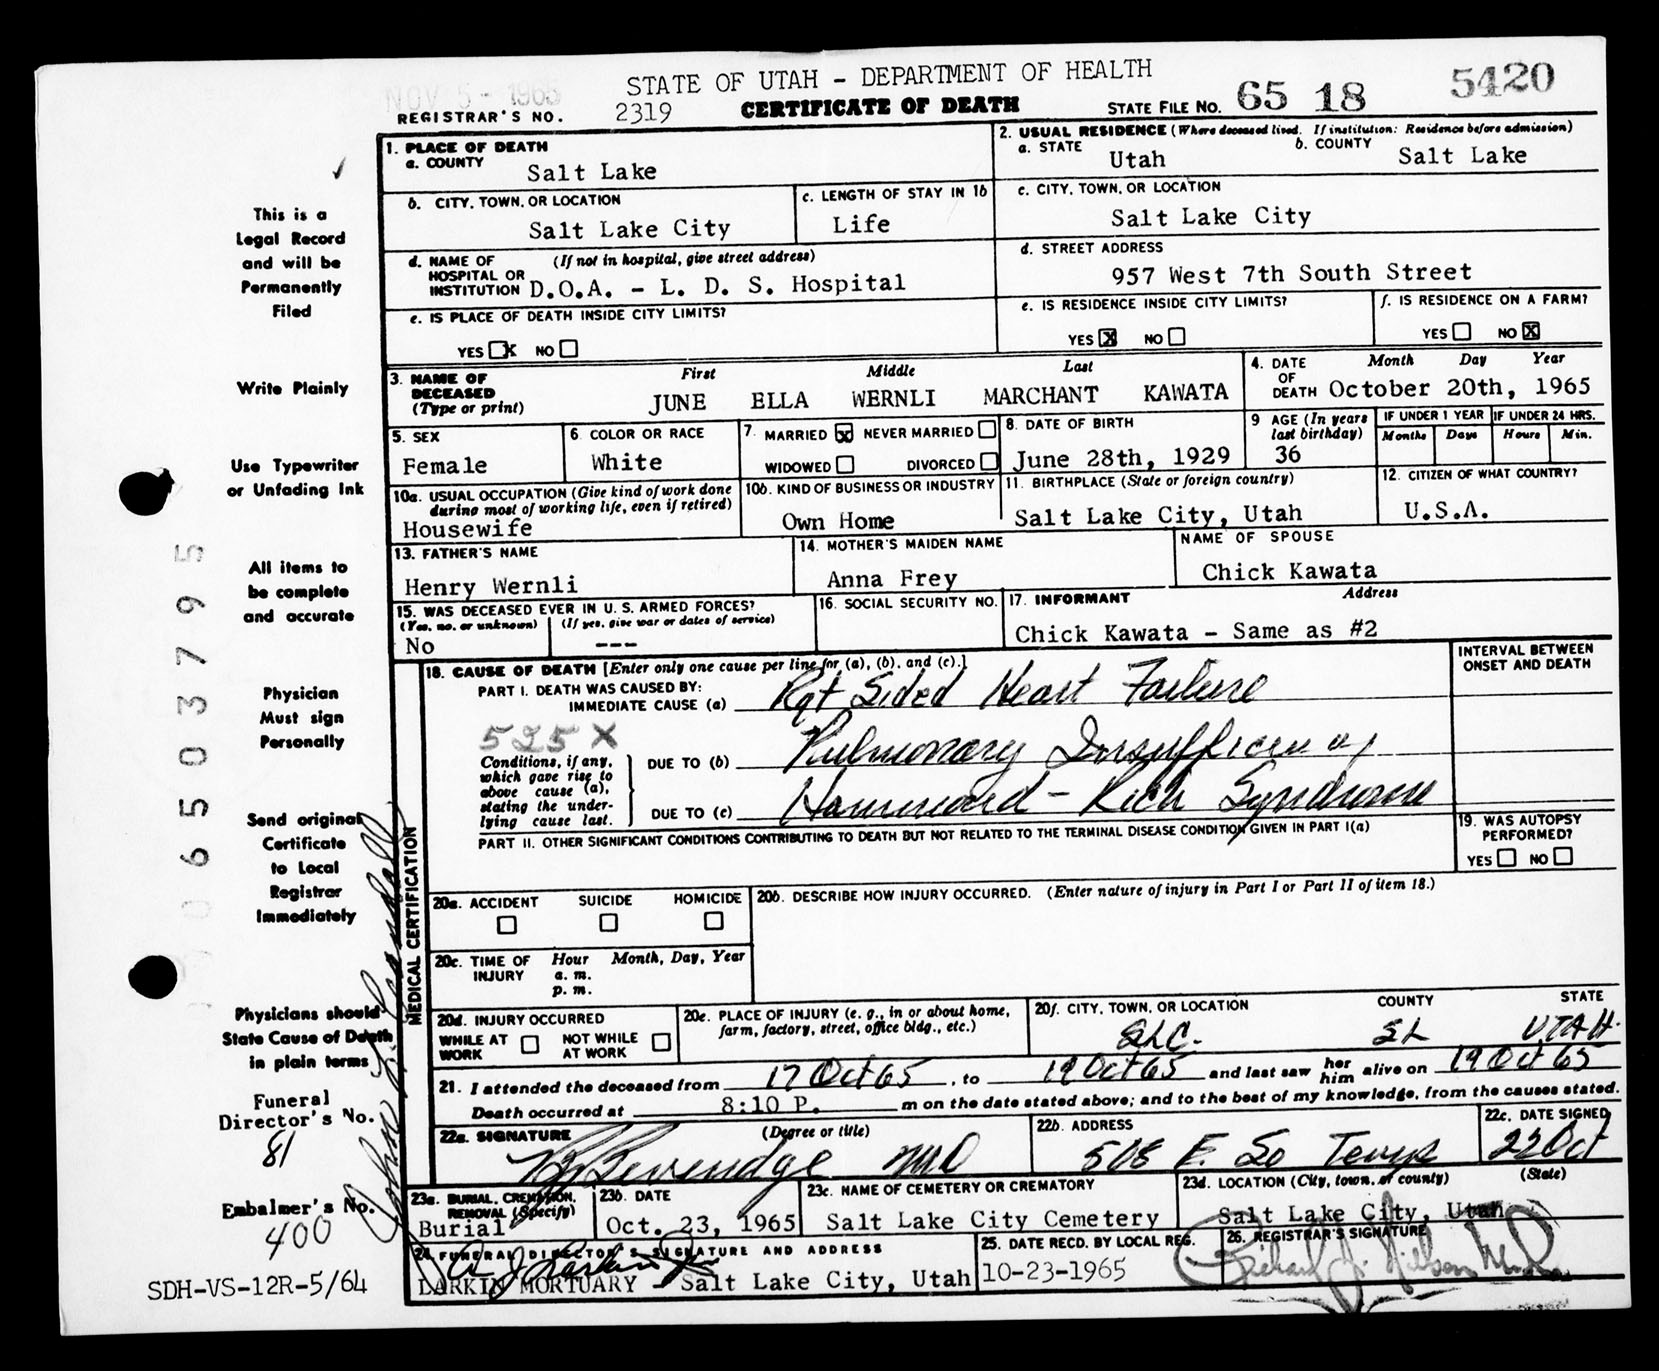 STATE OF UTAH - DEPARTMENT OF HEALTH
NOV 5 - 1965
REGISTRAR'S NO. 2319 CERTIFICATE OF DEATH STATE FILE NO. 65 18 5420
1. PLACE OF DEATH
a. COUNTY Salt Lake
2. USUAL RESIDENCE (Where deceased lived. If institution: Residence before admission)
a. STATE Utah b. COUNTY Salt Lake
b. CITY, TOWN, OR LOCATION Salt Lake City
c. LENGTH OF STAY IN 1b Life
c. CITY, TOWN, OR LOCATION
Salt Lake City
d. NAME OF HOSPITAL OR INSTITUTION (If not in hospital, give street address)
D.O.A. - L. D. S. Hospital
d. STREET ADDRESS
957 West 7th South Street
e. IS PLACE OF DEATH INSIDE CITY LIMITS?
YES X NO
e. IS RESIDENCE INSIDE CITY LIMITS?
YES X NO
f. IS RESIDENCE ON A FARM?
YES NO X
3. NAME OF DECEASED (Type or print) First Middle Last
JUNE ELLA WERNLI MARCHANT KAWATA
4. DATE OF DEATH Month Day Year
October 20th, 1965
5. SEX
Female
6 COLOR OR RACE
White
7. MARRIED X NEVER MARRIED
WIDOWED DIVORCED
8. DATE OF BIRTH
June 28th, 1929
9 AGE (In years last birthday)
36
IF UNDER 1 YEAR IF UNDER 24 HRS.
Months Days Hours Min.
10a. USUAL OCCUPATION (Give kind of work done during most of working life, even if retired)
Housewife
10b. KIND OF BUSINESS OR INDUSTRY
Own Home
11. BIRTHPLACE (State or foreign country)
Salt Lake City, Utah
12. CITIZEN OF WHAT COUNTRY?
U.S.A.
13. FATHER'S NAME
Henry Wernli
14. MOTHER'S MAIDEN NAME
Anna Frey
NAME OF SPOUSE
Chick Kawata
15. WAS DECEASED EVER IN U. S. ARMED FORCES?
(Yes, no, or unknown) (If yes, give war or dates of service)
No ---
16. SOCIAL SECURITY NO.
17. INFORMANT Address
Chick Kawata - Same as #2
18. CAUSE OF DEATH [Enter only one cause per line for (a), (b), and (c).]
INTERVAL BETWEEN ONSET AND DEATH
PART I. DEATH WAS CAUSED BY:
IMMEDIATE CAUSE (a) Rgt Sided Heart Failure
525 X
Conditions, if any, which gave rise to above cause (a), stating the underlying cause last.
DUE TO (b) Pulmonary Insufficiency
DUE TO (c) Hammond - Rich Syndrome
PART II. OTHER SIGNIFICANT CONDITIONS CONTRIBUTING TO DEATH BUT NOT RELATED TO THE TERMINAL DISEASE CONDITION GIVEN IN PART I(a)
19. WAS AUTOPSY PERFORMED?
YES NO
20a. ACCIDENT SUICIDE HOMICIDE
20b. DESCRIBE HOW INJURY OCCURRED. (Enter nature of injury in Part I or Part II of item 18.)
20c. TIME OF INJURY Hour Month, Day, Year
a. m.
p. m.
20d. INJURY OCCURRED
WHILE AT WORK NOT WHILE AT WORK
20e. PLACE OF INJURY (e. g., in or about home, farm, factory, street, office bldg., etc.)
20f. CITY, TOWN, OR LOCATION COUNTY STATE
SLC. SL UTAH.
21. I attended the deceased from 17 Oct 65, to 19 Oct 65 and last saw her him alive on 19 Oct 65
Death occurred at 8:10 P. m on the date stated above; and to the best of my knowledge, from the causes stated.
22a. SIGNATURE (Degree or title)
Beveridge MD
22b. ADDRESS
508 E. So Temple
22c. DATE SIGNED
22 Oct
23a. BURIAL, CREMATION, REMOVAL (Specify)
Burial
23b. DATE
Oct. 23, 1965
23c. NAME OF CEMETERY OR CREMATORY
Salt Lake City Cemetery
23d. LOCATION (City, town, or county) (State)
Salt Lake City, Utah
24. FUNERAL DIRECTOR'S SIGNATURE AND ADDRESS
LARKIN MORTUARY - Salt Lake City, Utah
25. DATE RECD. BY LOCAL REG.
10-23-1965
26. REGISTRAR'S SIGNATURE
MEDICAL CERTIFICATION
This is a
Legal Record
and will be
Permanently
Filed
Write Plainly
Use Typewriter
or Unfading Ink
All items to
be complete
and accurate
Physician
Must sign
Personally
Send original
Certificate
to Local
Registrar
Immediately
Physicians should
State Cause of Death
in plain terms
Funeral
Director's No.
81
Embalmer's No.
400
SDH-VS-12R-5/64
06503795